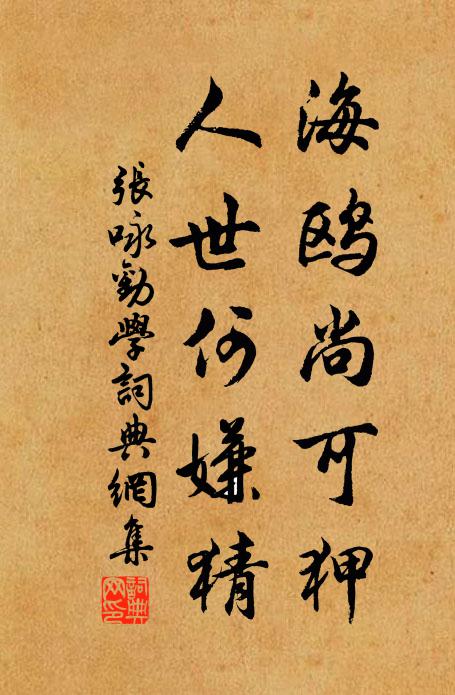 海鸥尚可狎
人世何嫌猜
張咏勸學詞典網集
詞典
网印